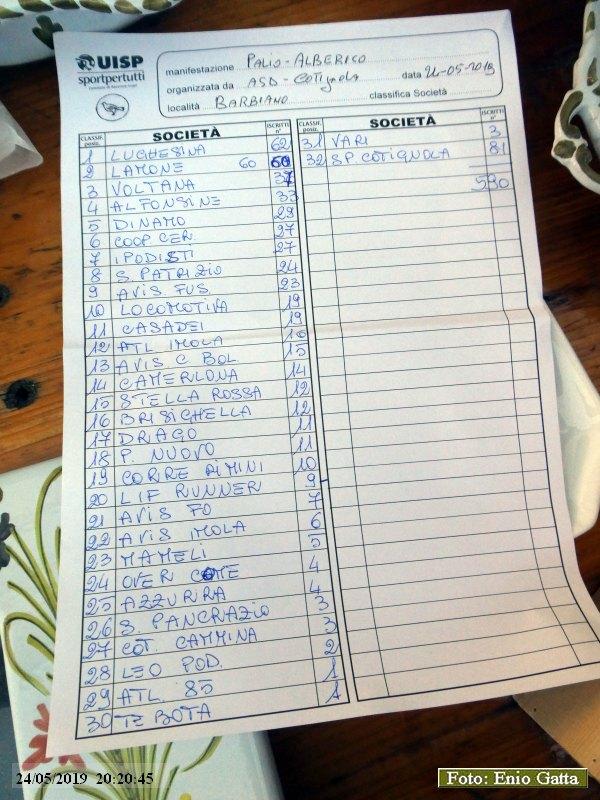 UISP
sportpertutti
manifestazione PALIO-ALBERICO
organizzata da ASD-COTIGNOLA data 24-05-2019
località BARBIANO classifica Società
CLASSIF. posiz. SOCIETÀ ISCRITTI n°
1 LUGHESINA 62
2 LAMONE 60 60
3 VOLTANA 37
4 ALFONSINE 33
5 DINAMO 29
6 COOP CER. 27
7 IPODISTI 27
8 S. PATRIZIO 24
9 AVIS FUS. 23
10 LOCOMOTIVA 19
11 CASADEI 19
12 ATL IMOLA 16
13 AVIS C BOL 15
14 CAMERLONA 14
15 STELLA ROSSA 12
16 BRISIGHELLA 12
17 DRAGO 11
18 P. NUOVO 11
19 CORRE RIMINI 10
20 LIF RUNNER 9
21 AVIS FO 7
22 AVIS IMOLA 6
23 MAMELI 5
24 OVER COME 4
25 AZZURRA 4
26 S. PANCRAZIO 3
27 COT. CAMMINA 3
28 LEO POD. 2
29 ATL. 85 1
30 TE BOTA 1
CLASSIF. posiz. SOCIETÀ ISCRITTI n°
31 VARI 3
32 SP. COTIGNOLA 81
590
24/05/2019 20:20:45
Foto: Enio Gatta